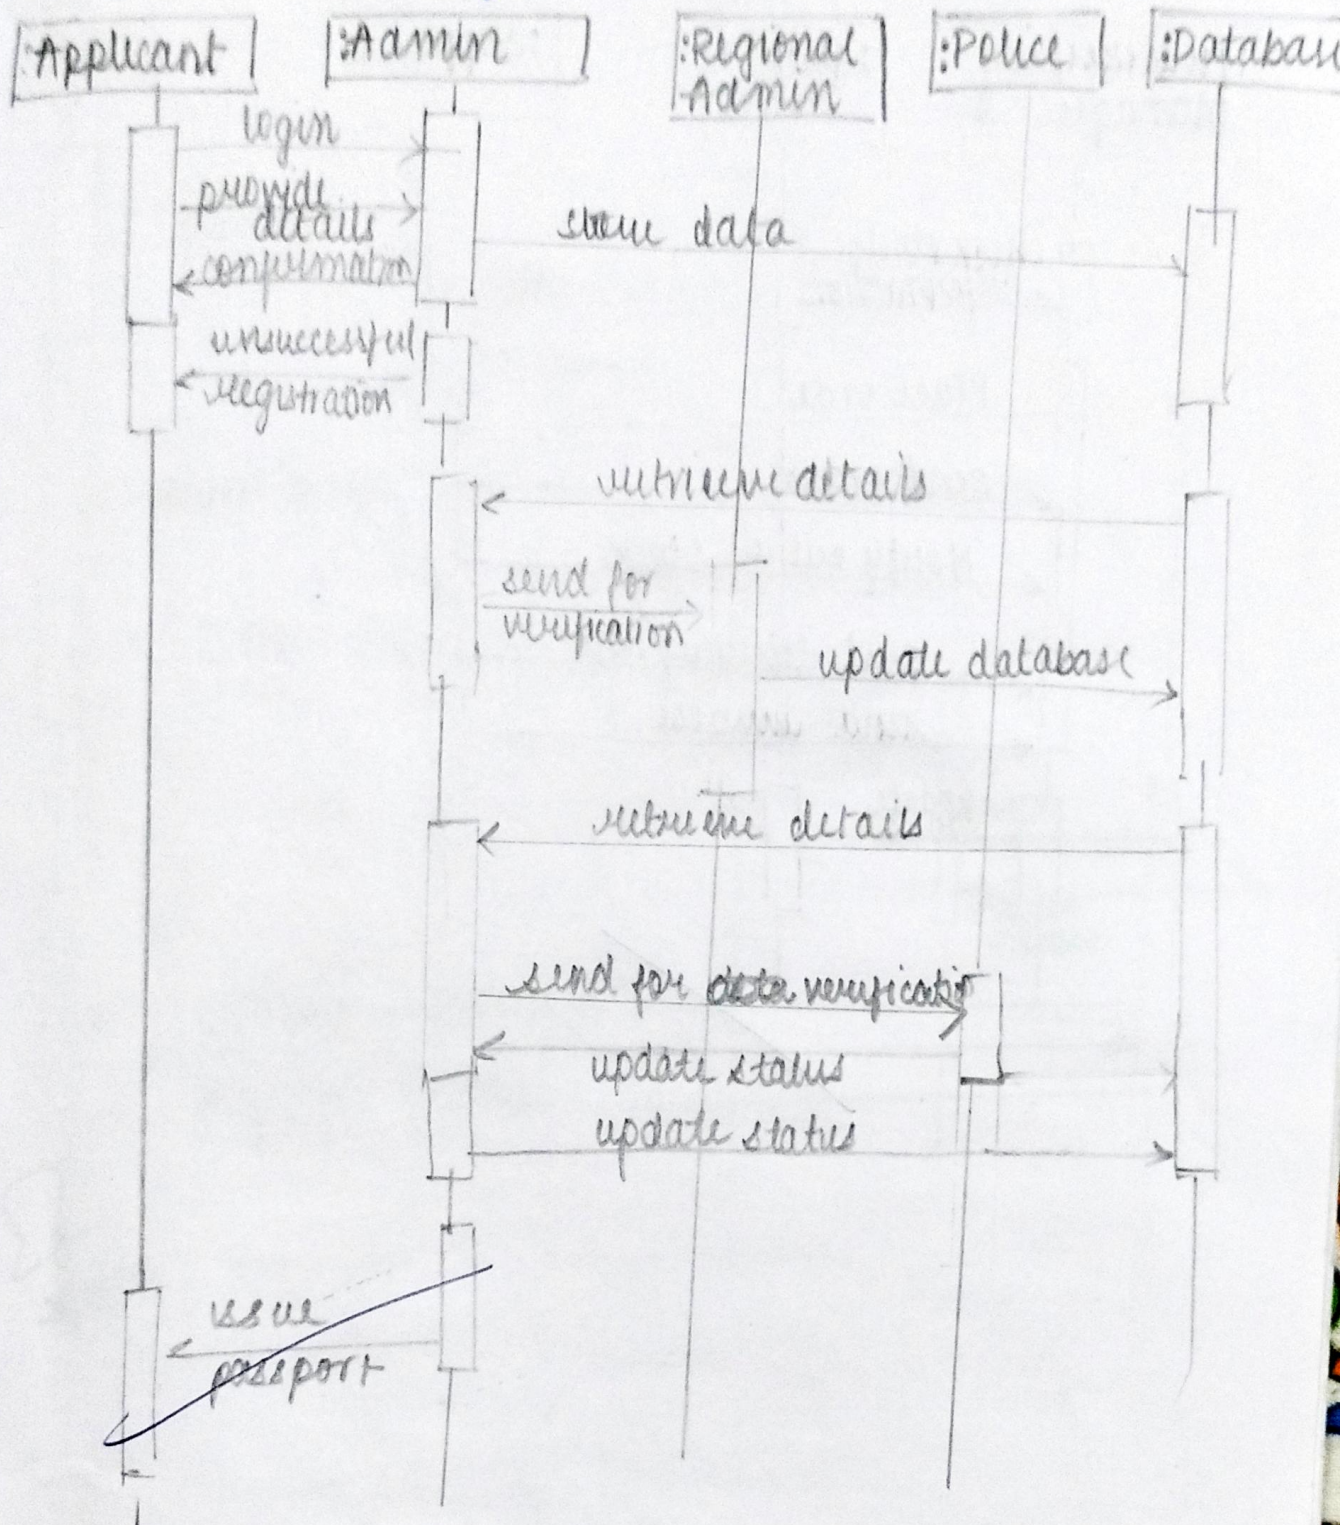 :Applicant
:Admin
:Regional
Admin
:Police
:Database
login
provide
details
store data
confirmation
unsuccessful
registration
retrieve details
send for
verification
update database
retrieve details
send for data verification
update status
update status
issue
passport